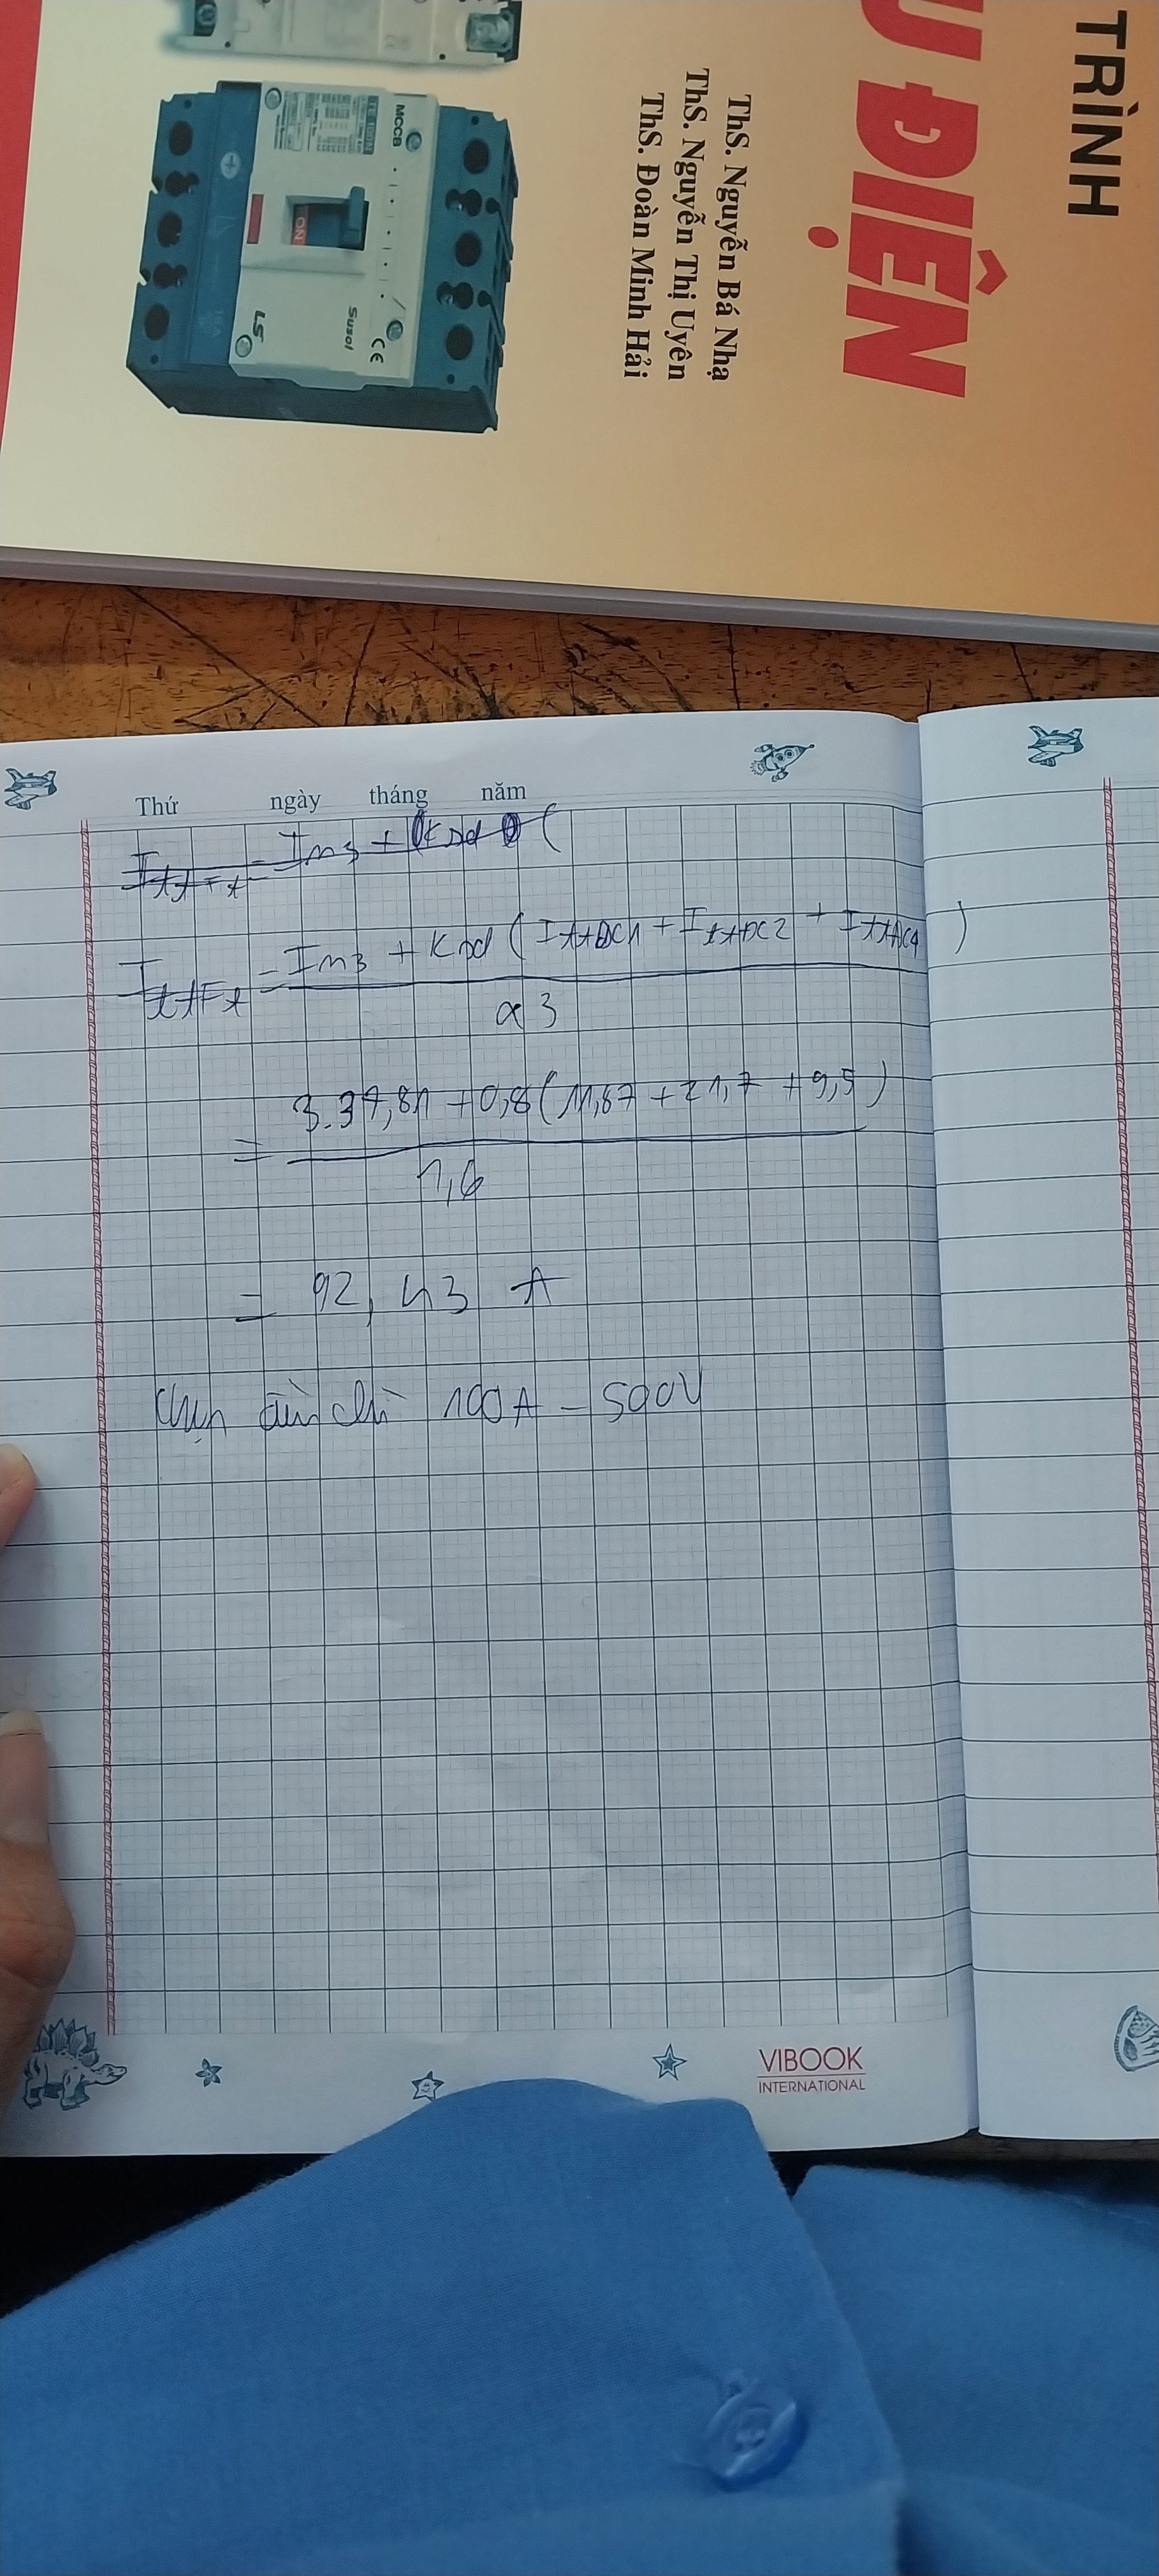 TRÌNH
U ĐIỆN
ThS. Nguyễn Bá Nhạ
ThS. Nguyễn Thị Uyên
ThS. Đoàn Minh Hải
MCCB
TE 100N
ON
Susol
LS
CE
Thứ ngày tháng năm
IttFt = Im3 + Knd (
IttFt = Im3 + Knd (IttĐC1 + IttĐC2 + IttĐC4)
α3
= 3.37,81 + 0,8(11,87 + 21,7 + 9,5)
1,6
= 92,43 A
Chọn cầu chì 100A - 500V
VIBOOK
INTERNATIONAL